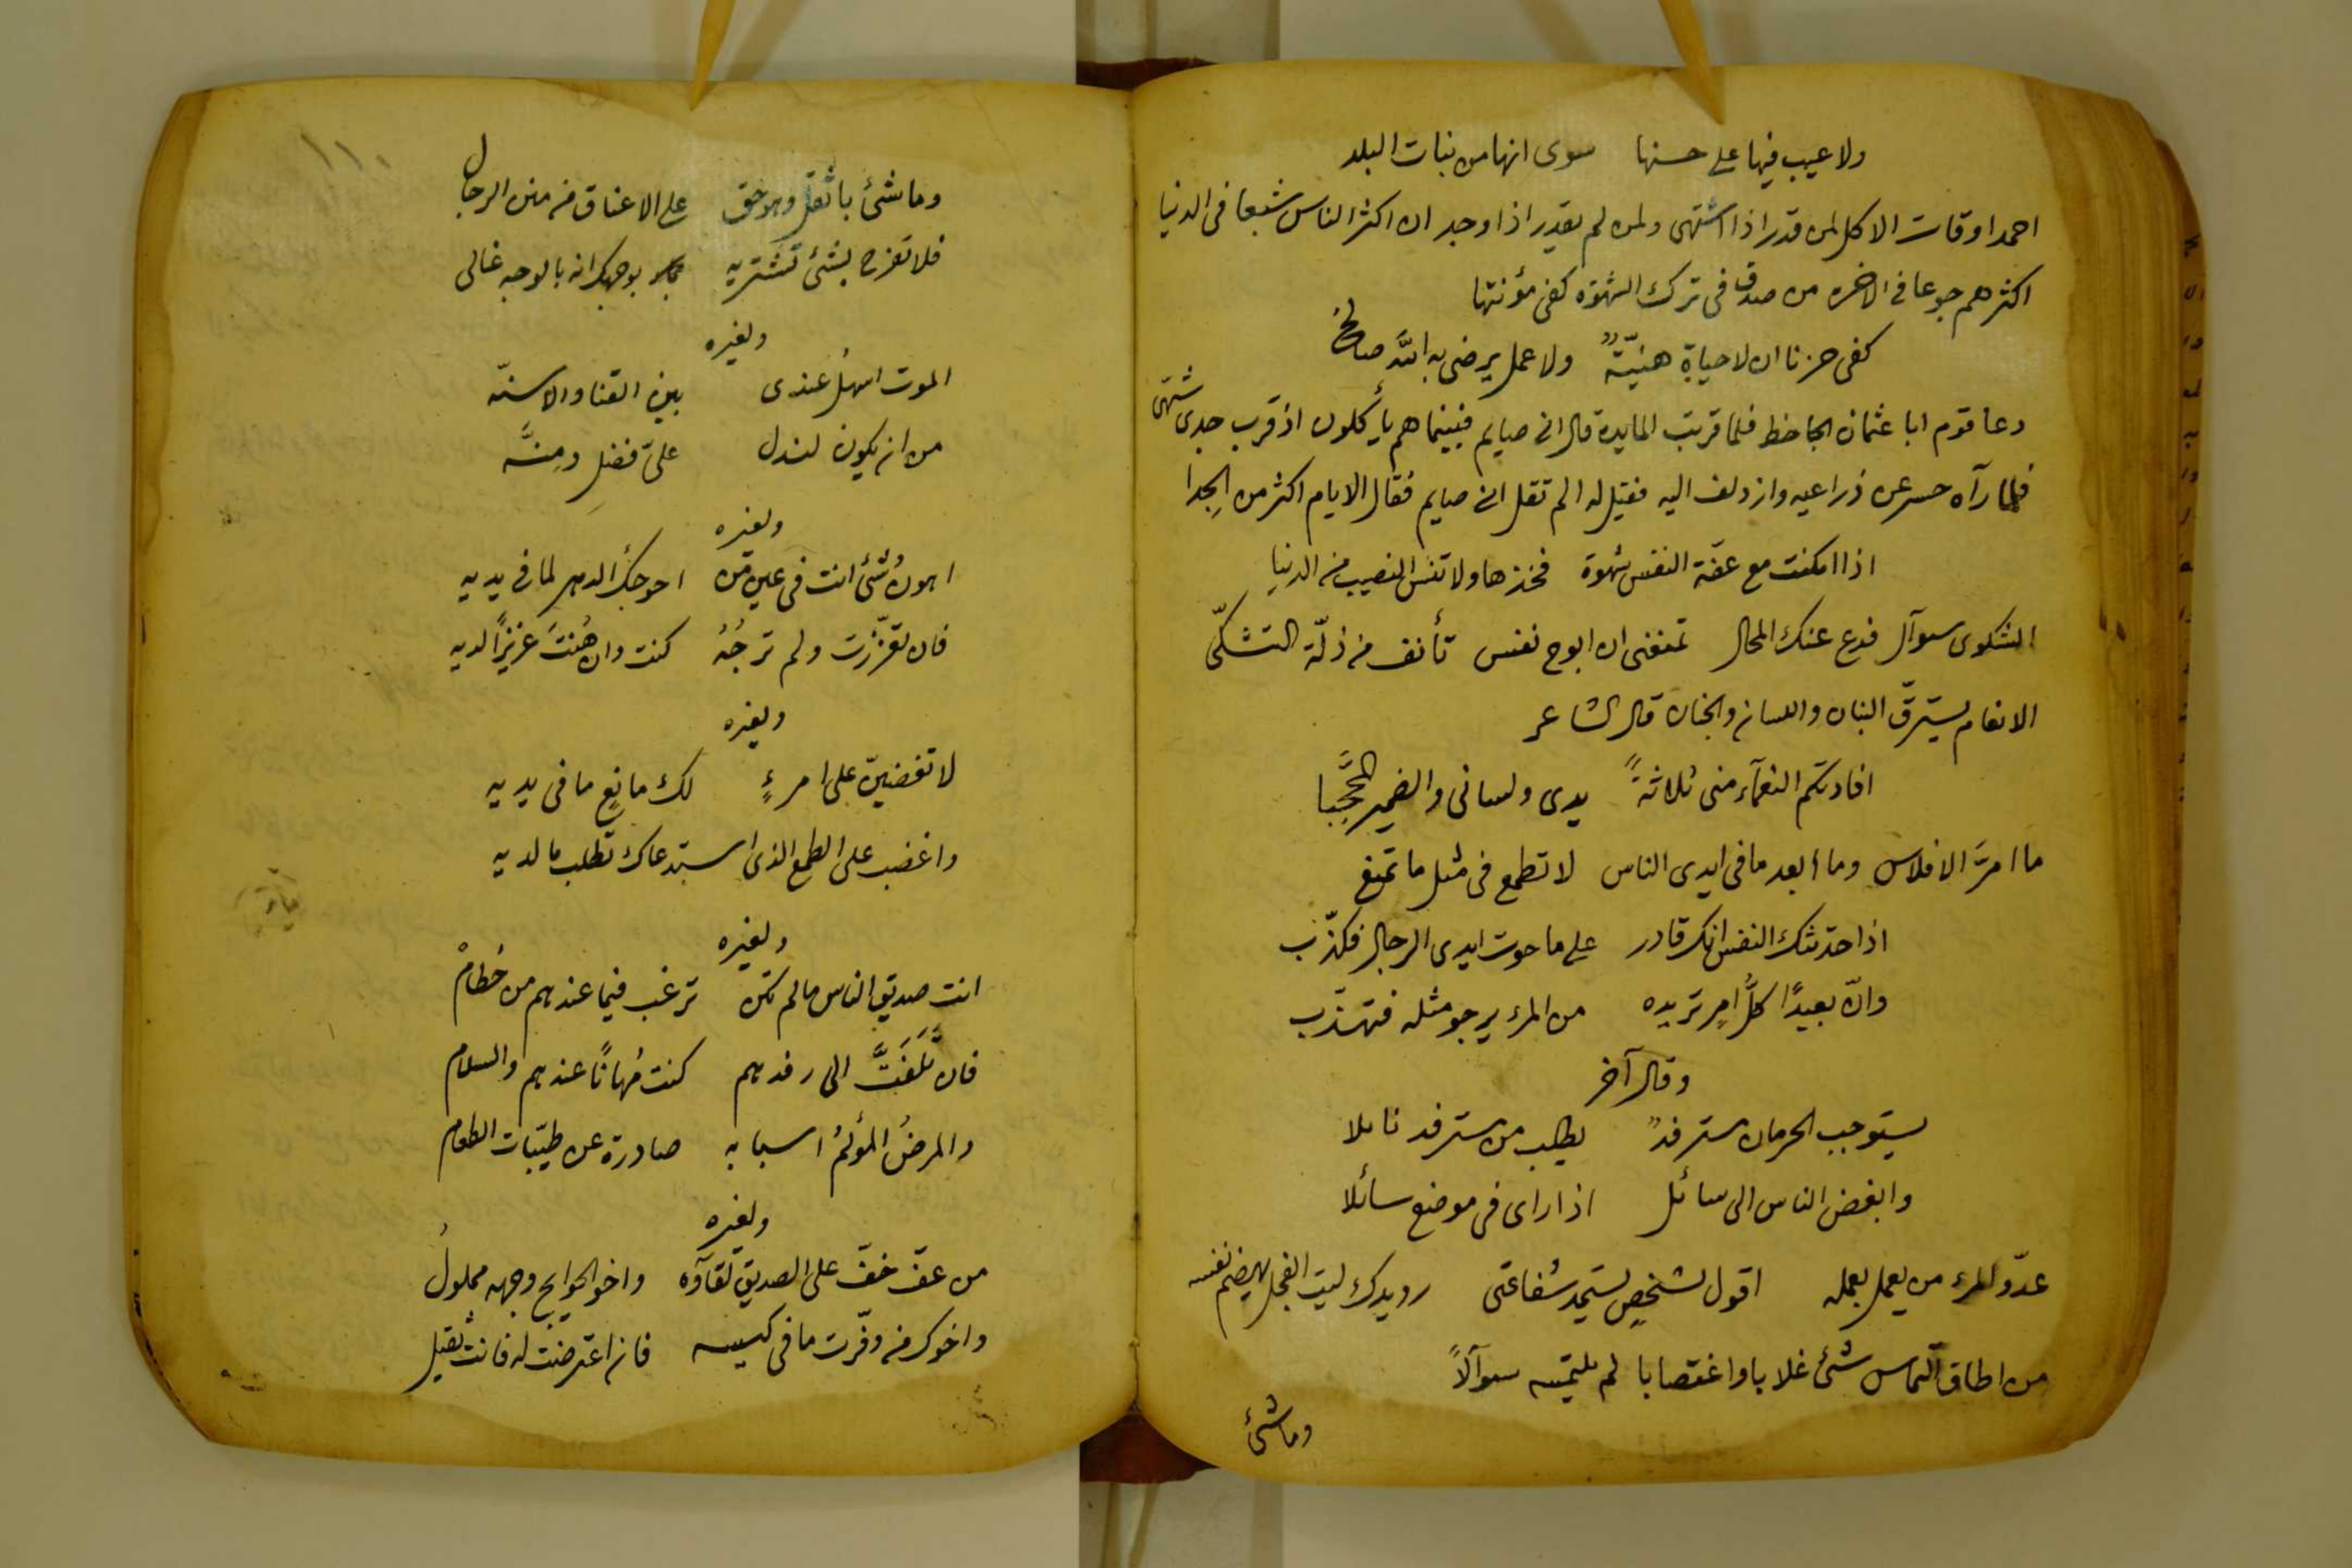 ولا عيب فيها على حسنها سوى انها من بنات البلد
احمد اوقات الاكل لمن قدر اذا اشتهى ولمن لم يقدر اذا وجد ان اكثر الناس شبعا فى الدنيا
اكثرهم جوعا فى الاخرة من صدق فى ترك الشهوة كفى مؤنتها
كفى حزنا ان لا حياة هنيّة ولا عمل يرضى به الله صالح
دعا قوم ابا عثمان الجاحظ فلما قربت المايدة قال انى صايم فبينما هم يأكلون اذ قرب جدى شهى
فلما رآه حسر عن ذراعيه وازدلف اليه فقيل له الم تقل انى صايم فقال الايام اكثر من الجدا
اذا امكنت مع عفّة النفس شهوة فخذها ولا تنس النصيب من الدنيا
الشكوى سوآل فدع عنك المحال تمنعنى ان ابوح نفس تأنف من ذلّة التشكّى
الانعام يسترقّ البنان واللسان والجنان قال الشاعر
افادتكم النعمآء منى ثلاثةً يدى ولسانى والضمير المحجّبا
ما امرّ الافلاس وما ابعد ما فى ايدى الناس لا تطمع فى مثل ما تمنع
اذا حدثتك النفس انك قادر على ما حوت ايدى الرجال فكذّب
وانّ بعيدًا كلّ امر تريده من المرء يرجو مثله فتهذّب
وقال آخر
يستوجب الحرمان مسترفدٌ يطلب من مسترفد نائلا
وابغض الناس الى سائل اذا راى فى موضع سائلا
عدوّ للمرء من يعمل بعمله اقول لشخصٍ يستمد شفاعتى رويدك ليت الفجل يهضم نفسه
من اطاق التماس شئ غلابا واغتصابا لم يلتمسه سوآلاً
وما شئ
١١٠
وما شئ باثقل وهو حق على الاعناق من منن الرجال
فلا تفرح بشئ تشتريه بوجهك انه بالوجه غالى
ولغيره
الموت اسهل عندى بين القنا والاسنّه
من ان يكون لنذل علىّ فضل ومِنّه
ولغيره
اهونُ شئ انت فى عين من احوجك الدهر لما فى يديه
فان تعزّزت ولم ترجُهُ كنت وان هُنتَ عزيزًا لديه
ولغيره
لا تغضبنّ على امرءٍ لك مانع ما فى يديه
واغضب على الطمع الذى استدعاك تطلب ما لديه
ولغيره
انت صديق الناس ما لم تكن ترغب فيما عندهم من حُطامْ
فان تلفّتّ الى رفدهم كنت مُهانًا عندهم والسلام
والمرضُ المؤلمُ اسبابه صادرة عن طيّبات الطعام
ولغيره
من عفّ خفّ على الصديق لقاؤه واخو الحوايج وجهه مملولُ
واخوك من وفّرت ما فى كيسه فان اعترضت له فانت ثقيل